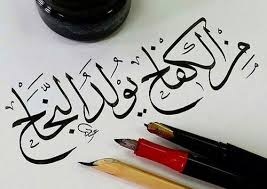 مِنَ الكِفَاحِ يُولَدُ النَّجَاحُ